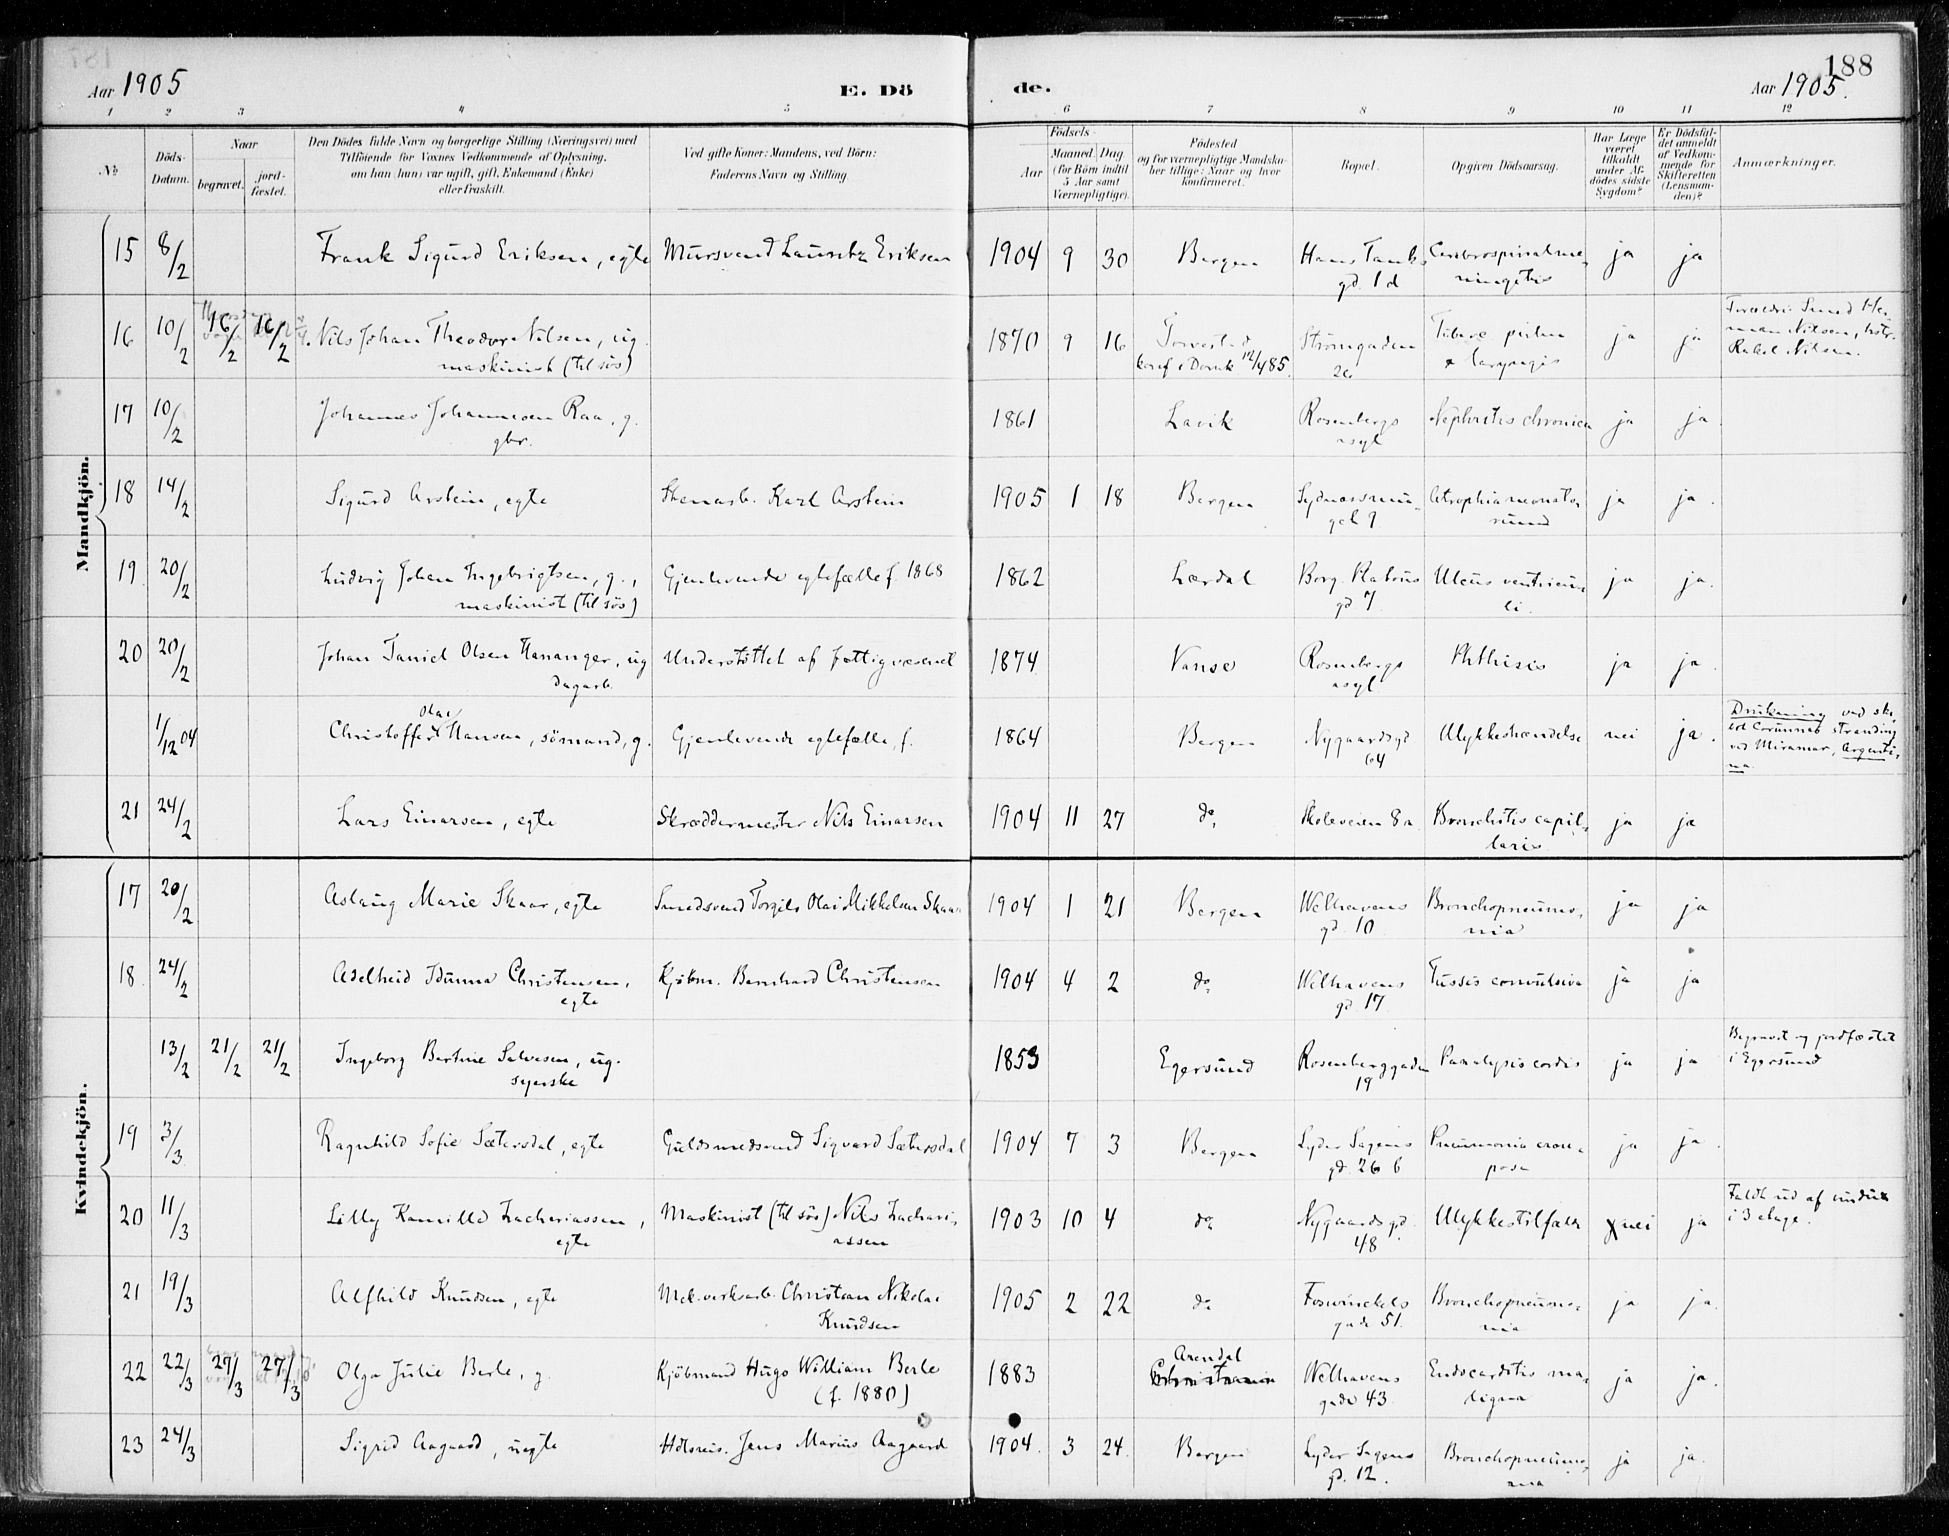 188
Aar 1905
E. Dö
de.
Aar 1905.
1 2 3 4 5 6 7 8 9 10 11 12
No
Döds-Datum.
Naar
begravet.
jord-fæstet.
Den Dödes fulde Navn og borgerlige Stilling (Næringsvei) med
Tilföiende for Voxnes Vedkommende af Oplysning,
om han (hun) var ugift, gift, Enkemand (Enke)
eller fraskilt.
Ved gifte Koner: Mandens, ved Börn:
Faderens Navn og Stilling.
Födsels-
Aar
Maaned. Dag
(for Börn indtil
5 Aar samt
Værnepligtige).
Födested
og for værnepligtige Mandska-
ber tillige: Naar og hvor
konfirmeret.
Bopæl.
Opgiven Dödsaarsag.
Har Læge
været
tilkaldt
under Af-
dödes sidste
Sygdom?
Er Dödsfal-
det anmeldt
af Vedkom-
mende for
Skifteretten
(Lensman-
den)?
Anmærkninger.
Mandkjön.
15 8/2 Frank Sigurd Eriksen, egte Mursvend Lauritz Eriksen 1904 9 30 Bergen Hans Tanks gd. 1 d Cerebrospinalmeningitis ja ja
16 10/2 16/2 16/2 Nils Johan Theodor Nilsen, ug. maskinist (til sös) 1870 9 16 Torvestad konf i Dovik 12/4 85. Strömgaden Tuberc pulm & laryngis ja ja Forældre: Smed Herman Nilsen, hstr. Rakel Nilsen.
17 10/2 Johannes Johannesen Raa, g. gbr. 1861 Lavik Rosenbergs asyl Nephritis chronica ja ja
18 14/2 Sigurd Arstein, egte Stenarb. Karl Arstein 1905 1 18 Bergen Sydnessmuget 9 Atrophia neonatorum ja ja.
19 20/2 Ludvig Johan Ingebrigtsen, g., maskinist (til sös) Gjenlevende egtefælle f. 1868 1862 Lærdal gd 7. Ulcus ventriculi. ja ja.
20 20/2 Johan Daniel Olsen Hananger, ug dagarb. Understöttet af fattigvæsenet 1874 Vanse Rosenbergs asyl Phthisis ja ja.
1/12 04 Christoffer Olai Hansen, sömand, g. Gjenlevende egtefælle, f. 1864 Bergen Nygaardsgd 64 Ulykkeshændelse nei ja. Drukning ved Corunnas stranding ved Miramar, Argentina
21 24/2 Lars Einarsen, egte Skræddermester Nils Einarsen 1904 11 27 do, Skoleveien 8a. Bronchitis capillaris ja ja
Kvindekjön.
17 20/2 Aslaug Marie Skaar, egte Smedsvend Torgils Olai Mikkelsen Skaar 1904 1 21 Bergen Welhavens gd. 10 Bronchopneumonia ja ja
18 24/2 Adelheid Idunna Christensen, egte Kjöbm. Bernhard Christensen 1904 4 2 do, Welhavens gd. 17. Tussis convulsiva ja ja
13/2 21/2 21/2 Ingeborg Bertine Salvesen, ug. syerske 1853 Egersund Rosenberggaden 19 Paralysis cordis ja ja Begravet og jordfæstet i Egersund
19 3/3 Ragnhild Sofie Sætersdal, egte Guldsmedsvend Sigvard Sætersdal 1904 7 3 Bergen Lyder Sagens gd. 26 b Pneumonia crouposa ja ja.
20 11/3 Lilly Kamilla Zachariassen, egte Maskinist (til sös) Nils Zachariassen 1903 10 4 do, Nygaardsgd. 48 Ulykkestilfælde nei ja Faldt ud af vindu i 3 etage.
21 19/3 Alfhild Knudsen, egte Mek. verksarb. Christian Nikolai Knudsen 1905 2 22 do Fosswinckels gade 51. Bronchopneumonia ja ja.
22 22/3 27/3 27/3 Olga Julie Berle, g. Kjöbmand Hugo William Berle (f. 1880) 1883 Arendal Welhavens gade 43 Endocarditis maligna ja ja.
23 24/3 Sigrid Aagaard, uegte Hdlsreis. Jens Marius Aagaard 1904. 3 24. Bergen Lyder Sagens gd. 12. Bronchopneumonia ja ja.